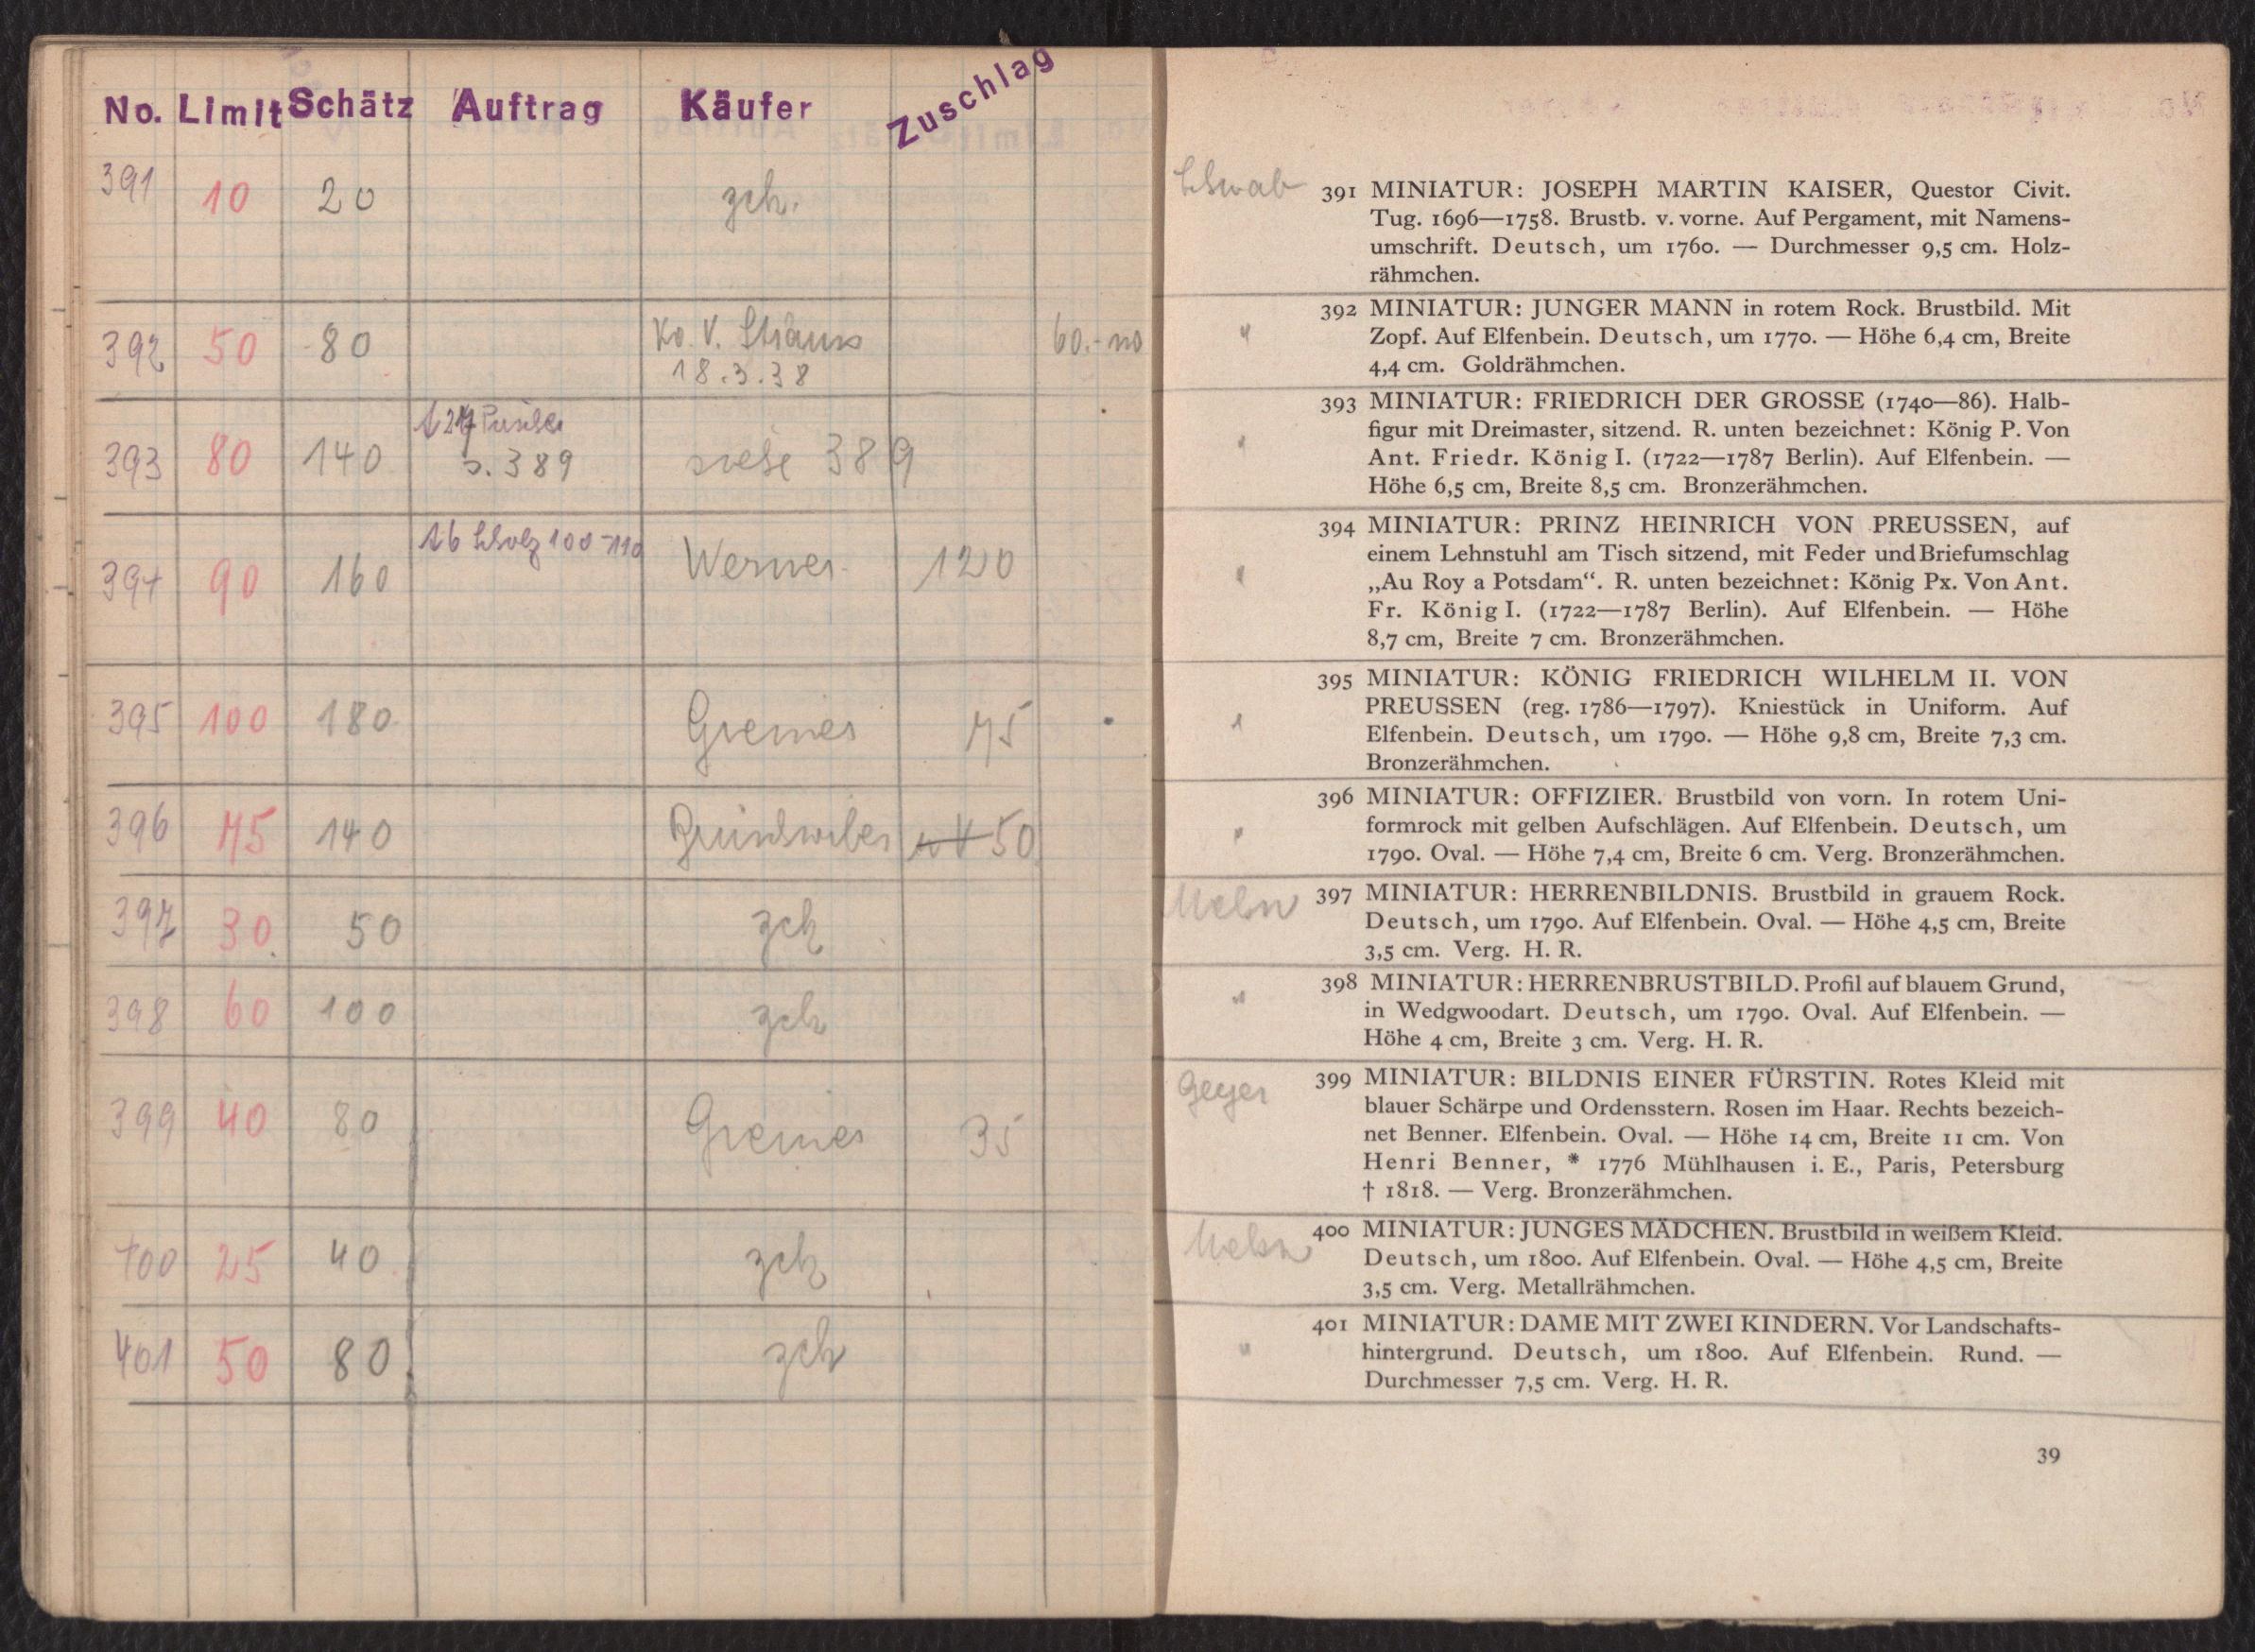 No. Limit Schätz Auftrag Käufer Zuschlag
391 10 20 zch.
392 50 80 Ko. V. Strauss 60.- no
18.3.38
393 80 140 s. 389 siehe 389
394 90 160 Scholz 100-110 Werner 120
395 100 180 Greiner 75
396 75 140 50
397 30 50 zch
398 60 100 zch
399 40 80 Greiner 35
400 25 40 zch
401 50 80 zch
Schwab
391 MINIATUR: JOSEPH MARTIN KAISER, Questor Civit.
Tug. 1696—1758. Brustb. v. vorne. Auf Pergament, mit Namens-
umschrift. Deutsch, um 1760. — Durchmesser 9,5 cm. Holz-
rähmchen.
" 392 MINIATUR: JUNGER MANN in rotem Rock. Brustbild. Mit
Zopf. Auf Elfenbein. Deutsch, um 1770. — Höhe 6,4 cm, Breite
4,4 cm. Goldrähmchen.
393 MINIATUR: FRIEDRICH DER GROSSE (1740—86). Halb-
figur mit Dreimaster, sitzend. R. unten bezeichnet: König P. Von
Ant. Friedr. König I. (1722—1787 Berlin). Auf Elfenbein. —
Höhe 6,5 cm, Breite 8,5 cm. Bronzerähmchen.
394 MINIATUR: PRINZ HEINRICH VON PREUSSEN, auf
einem Lehnstuhl am Tisch sitzend, mit Feder und Briefumschlag
„Au Roy a Potsdam“. R. unten bezeichnet: König Px. Von Ant.
Fr. König I. (1722—1787 Berlin). Auf Elfenbein. — Höhe
8,7 cm, Breite 7 cm. Bronzerähmchen.
395 MINIATUR: KÖNIG FRIEDRICH WILHELM II. VON
PREUSSEN (reg. 1786—1797). Kniestück in Uniform. Auf
Elfenbein. Deutsch, um 1790. — Höhe 9,8 cm, Breite 7,3 cm.
Bronzerähmchen.
396 MINIATUR: OFFIZIER. Brustbild von vorn. In rotem Uni-
formrock mit gelben Aufschlägen. Auf Elfenbein. Deutsch, um
1790. Oval. — Höhe 7,4 cm, Breite 6 cm. Verg. Bronzerähmchen.
397 MINIATUR: HERRENBILDNIS. Brustbild in grauem Rock.
Deutsch, um 1790. Auf Elfenbein. Oval. — Höhe 4,5 cm, Breite
3,5 cm. Verg. H. R.
" 398 MINIATUR: HERRENBRUSTBILD. Profil auf blauem Grund,
in Wedgwoodart. Deutsch, um 1790. Oval. Auf Elfenbein. —
Höhe 4 cm, Breite 3 cm. Verg. H. R.
Geyer
399 MINIATUR: BILDNIS EINER FÜRSTIN. Rotes Kleid mit
blauer Schärpe und Ordensstern. Rosen im Haar. Rechts bezeich-
net Benner. Elfenbein. Oval. — Höhe 14 cm, Breite 11 cm. Von
Henri Benner, * 1776 Mühlhausen i. E., Paris, Petersburg
† 1818. — Verg. Bronzerähmchen.
400 MINIATUR: JUNGES MÄDCHEN. Brustbild in weißem Kleid.
Deutsch, um 1800. Auf Elfenbein. Oval. — Höhe 4,5 cm, Breite
3,5 cm. Verg. Metallrähmchen.
" 401 MINIATUR: DAME MIT ZWEI KINDERN. Vor Landschafts-
hintergrund. Deutsch, um 1800. Auf Elfenbein. Rund. —
Durchmesser 7,5 cm. Verg. H. R.
39